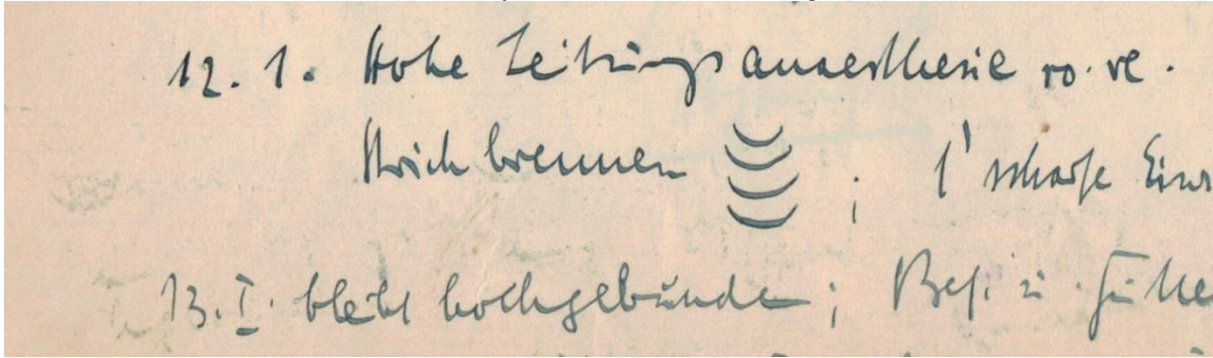 12. 1. Hohe Leitungsanaesthesie vo. re.
Strichbrennen ; 1' scharfe Einr
13. I. bleibt hochgebunden; Bef. i